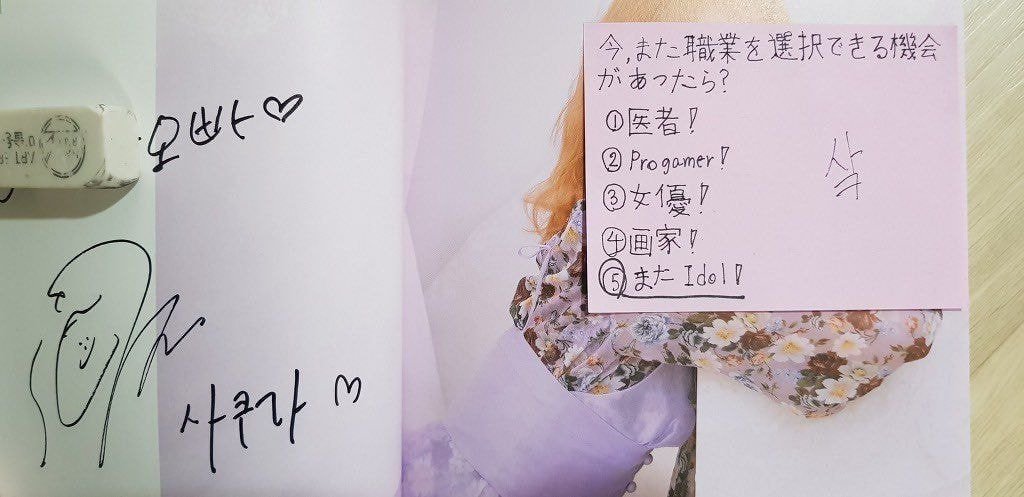 오빠♡
사쿠라
今,また職業を選択できる機会
があったら?
①医者!
②Progamer!
③女優!
④画家!
⑤またIdol!